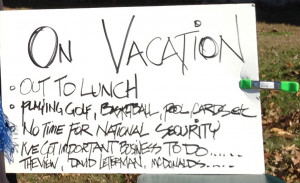 On Vacation
• Out to Lunch
• Playing Golf, Basketball, Pool, Cards etc
• No Time for National Security
• I've Got Important Business to Do.....
The View, David Leterman, McDonalds.....